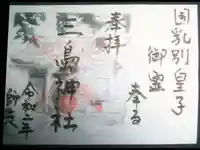 国乳別皇子
御霊
奉る
奉拝
三島神社
令和二年